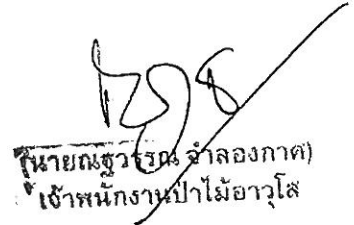 (นายณฐวรรณ จำลองกาศ)
เจ้าพนักงานป่าไม้อาวุโส